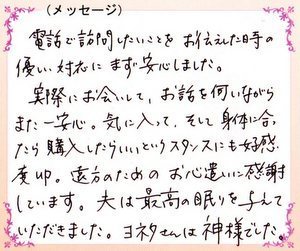 (メッセージ)
電話で訪問したいことをお伝えした時の
優しい対応にまず安心しました。
実際にお会いして、お話を伺いながら
また一安心。気に入って、そして身体に合っ
たら購入したらいいというスタンスにも好感
度UP。遠方のためのお心遣いに感謝
しています。夫は最高の眠りを与えて
いただきました。ヨネタさんは神様でした。